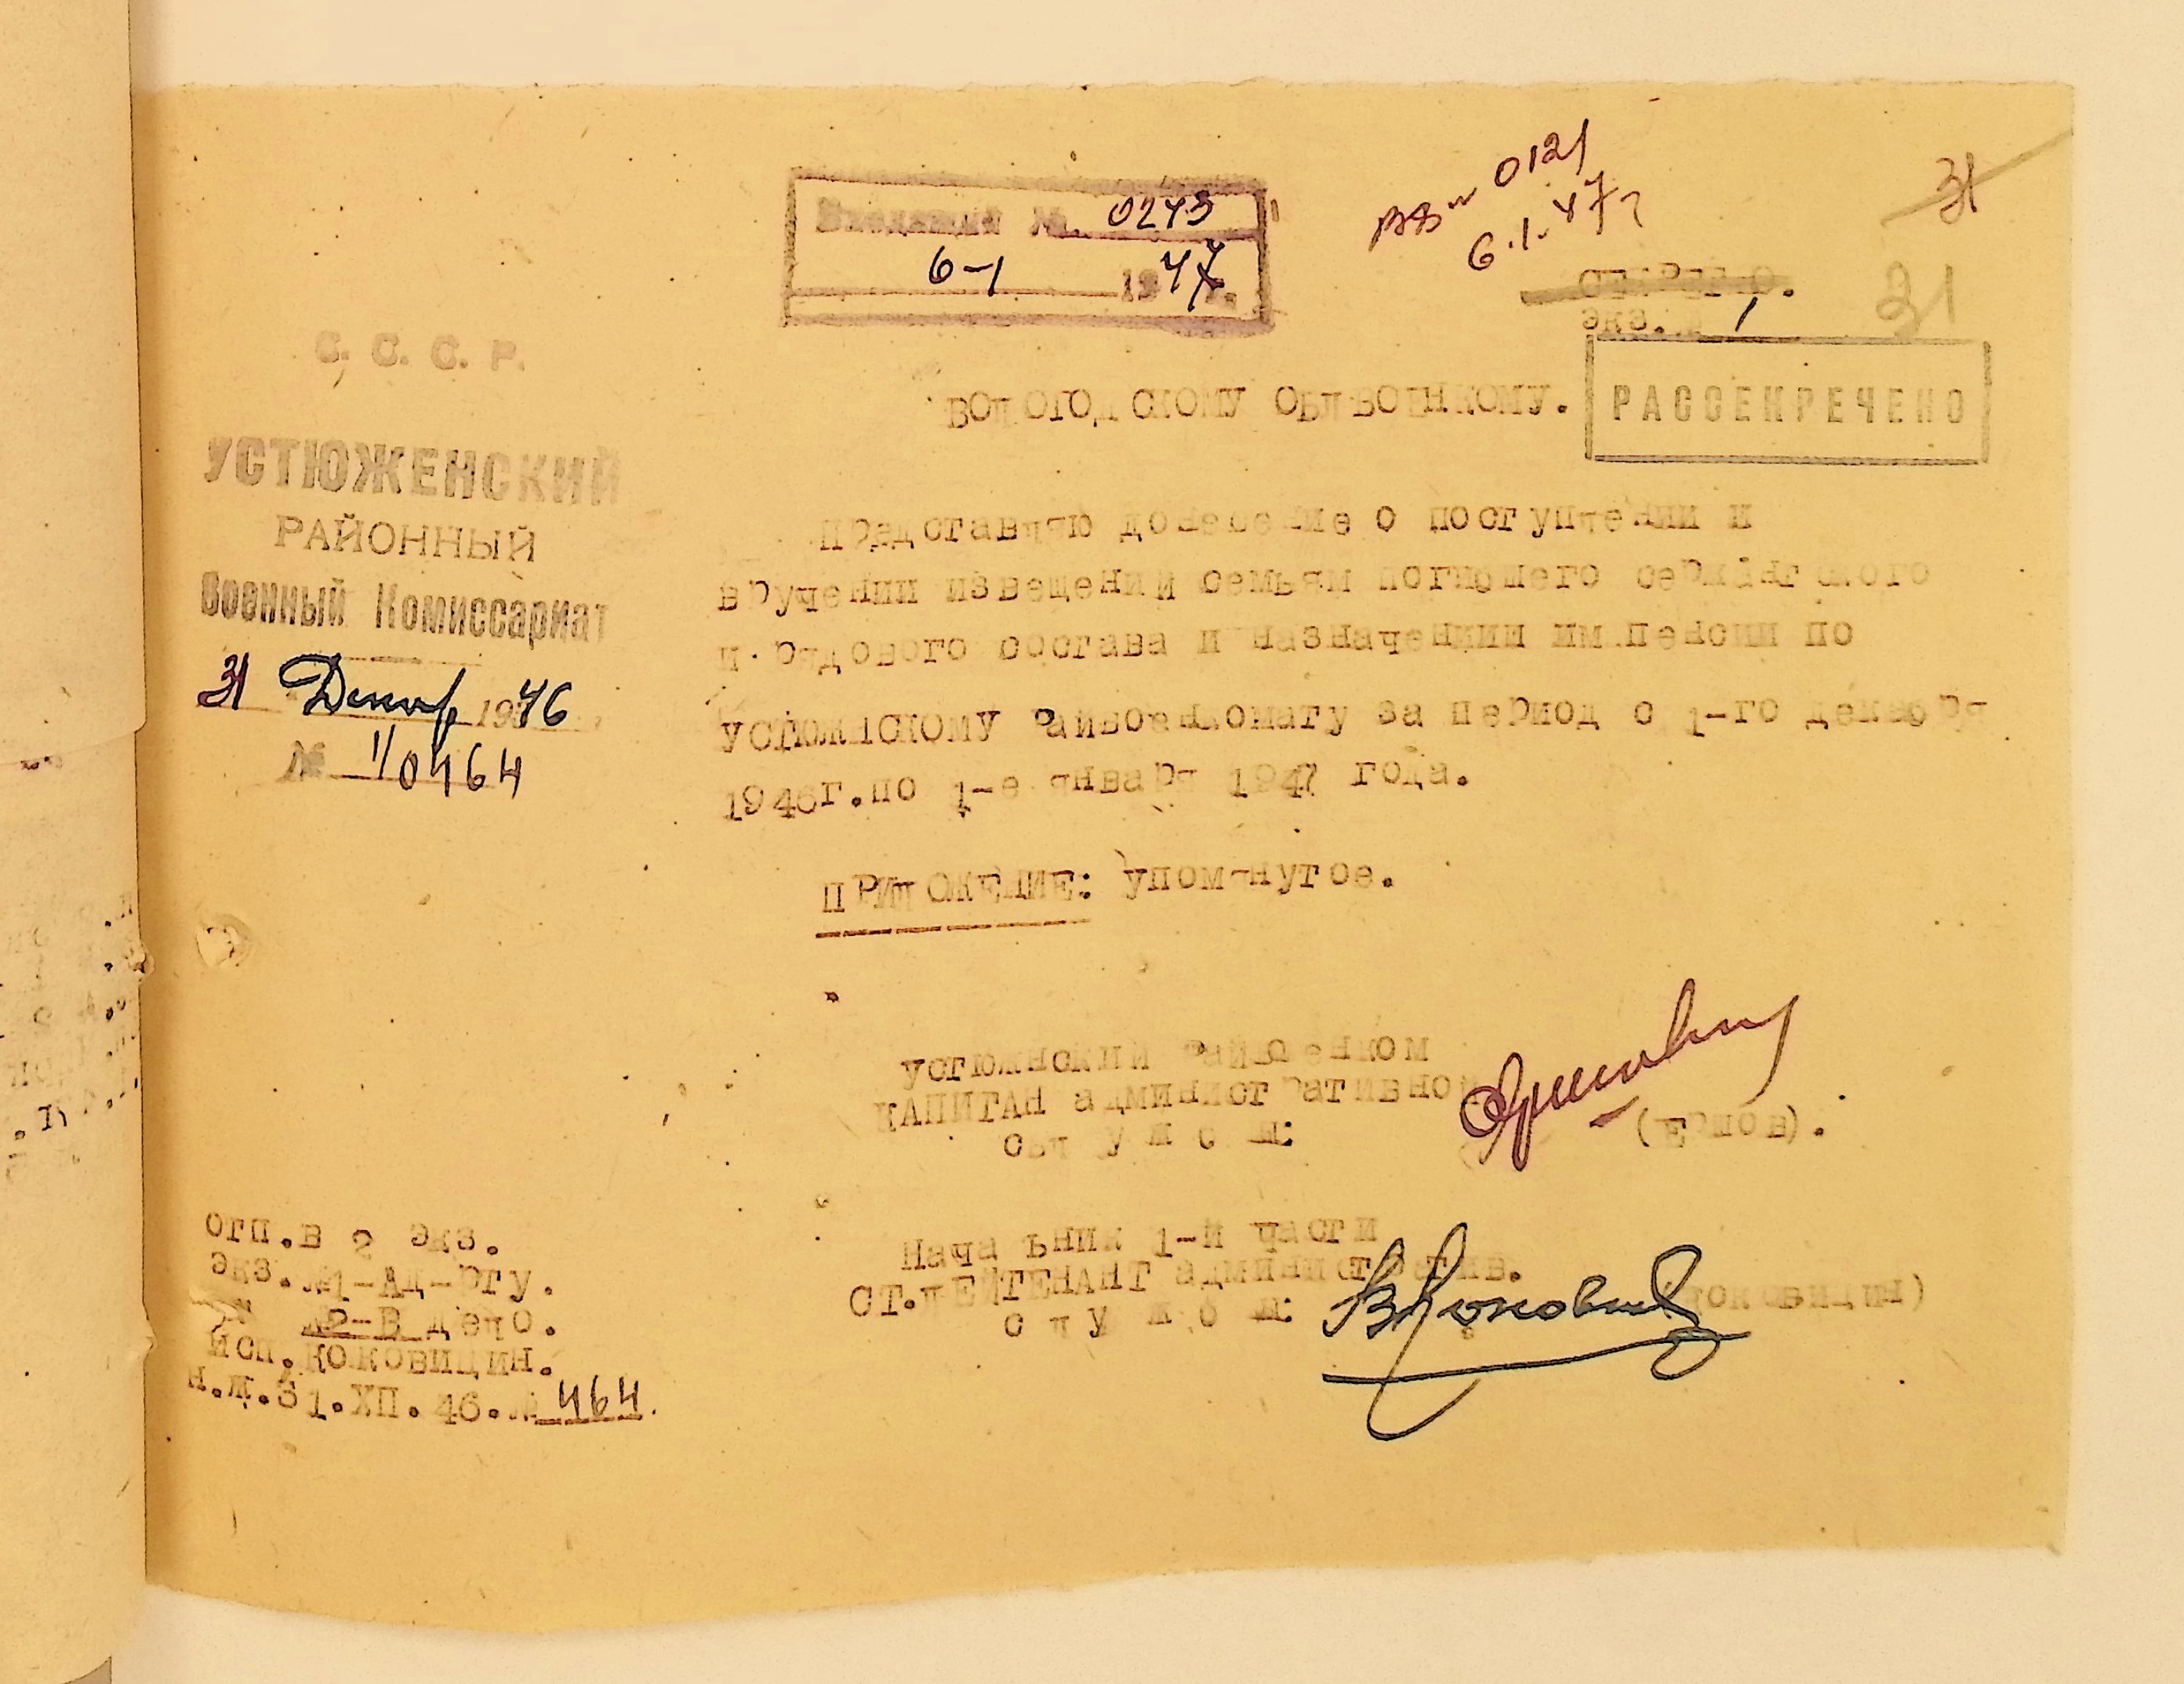 Входящий №. 0243
6-1 1947г.
0121
6.1.47г
31
СЕКРЕТНО.
экз. № 1
31
С. С. С. Р.
ВОЛОГОДСКОМУ ОБЛВОЕНКОМУ.
РАССЕКРЕЧЕНО
УСТЮЖЕНСКИЙ
РАЙОННЫЙ
Военный Комиссариат
31 Декабр 1946
№ 1/0464
Представляю донесение о поступлении и
вручении извещений семьям погибшего сержантского
и рядового состава и назначении им пенсии по
УСТЮЖЕНСКОМУ райвоенкомату за период с 1-го декабря
1946г.по 1-е января 1947 года.
ПРИЛОЖЕНИЕ: упомянутое.
УСТЮЖЕНСКИЙ райвоенком
КАПИТАН административной
службы:
(Ершов).
Начальник 1-й части
СТ.ЛЕЙТЕНАНТ административ.
службы:
(Коковидин)
отп.в 2 экз.
экз.№1-Ад-ргу.
№2-В дело.
исп.Коковидин.
н.ж.31.ХП.46.№ 464.